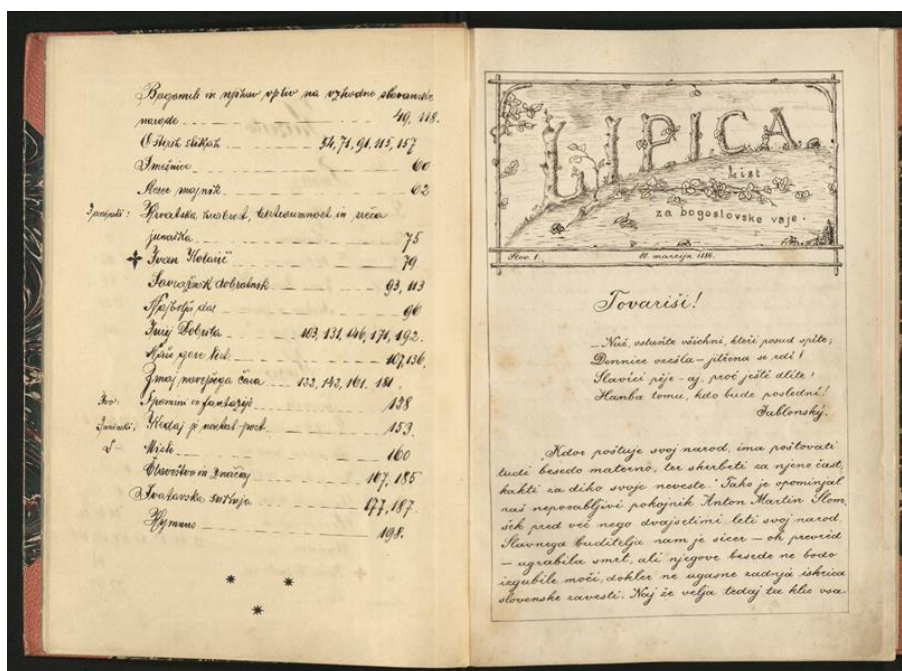 Bogomili in njihov vpliv na vzhodne slovanske
narode 49, 118.
O štirih stikah 54, 71, 91, 115, 157
Smešnice 60
Mesec majnik 62
Hrvatska hrabrost, častiumnost in sreča
junaška 75
Ivan Kolarič 79
Sovražnik dobrotnik 93, 113
Najboljši dar 96
Jurij Dobrila 103, 131, 146, 171, 192.
Naše gore list 107, 136,
Zmaj novejšega časa 122, 142, 161, 181.
Ivo: Spomini in fantazije 128
Kedaj je nastal post 153.
160
Človeštvo in značaj 167, 185
177, 187.
Hymnus 198.
LIPICA
List
za bogoslovske vaje.
Štev. 1. 10. marcija 1886.
Tovariši!
„Nuž, vstaňte všichni, kteří posud spíte;
Dennice vzešla – jitřena se rdí!
Slavíci pěje – aj, proč ještě dlíte!
Hanba tomu, kdo bude poslední!"
Jablonský.
„Kdor poštuje svoj narod, ima poštovati
tudi besedo materno, ter skerbeti za njeno čast,
kakti za diko svoje neveste." Tako je opominjal
naš nepozabljivi pokojnik Anton Martin Slom-
šek pred več nego dvajsetimi leti svoj narod.
Slavnega buditelja nam je sicer – oh prevred
– ugrabila smrt, ali njegove besede ne bodo
izgubile moči, dokler ne ugasne zadnja iskrica
slovenske zavesti. Naj že velja tedaj ta klic vsa-